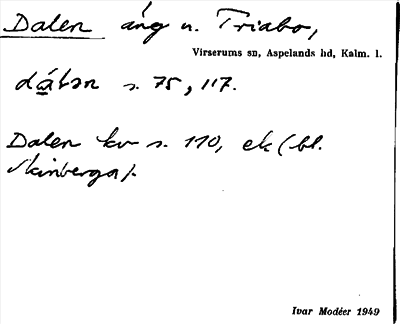 Dalen äng u. Triabo,
Virserums sn, Aspelands hd, Kalm. l.
dɑ́lən s. 75, 117.
Dalen kv s. 110, ek (bl.
Skinberga).
Ivar Modéer 1949